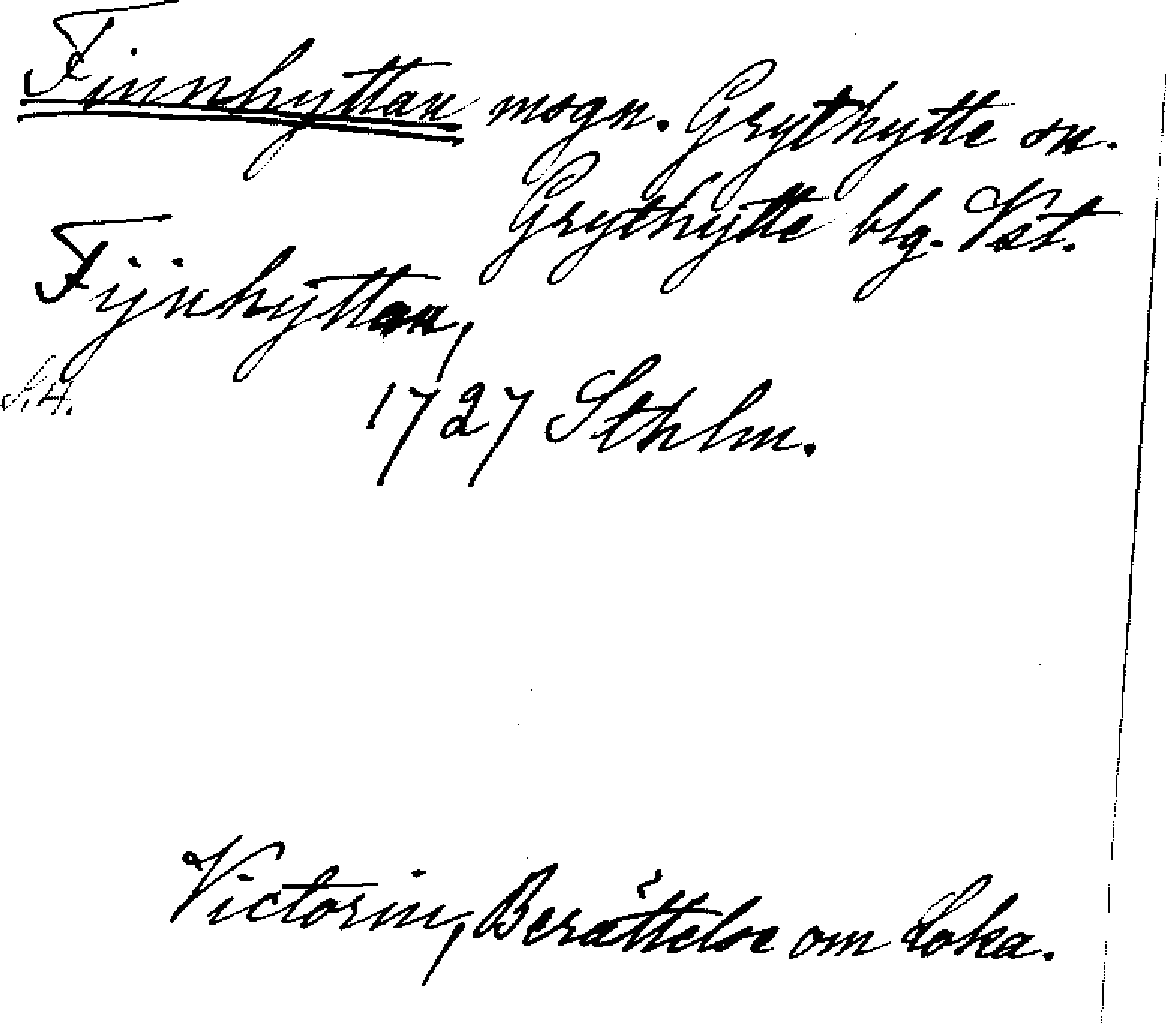 Finnhyttan msgn. Grythytte sn.
Grythytte blg. Vst.
Fijnhyttan,
S.H.
1727 Sthlm.
Victorin, Berättelse om Loka.